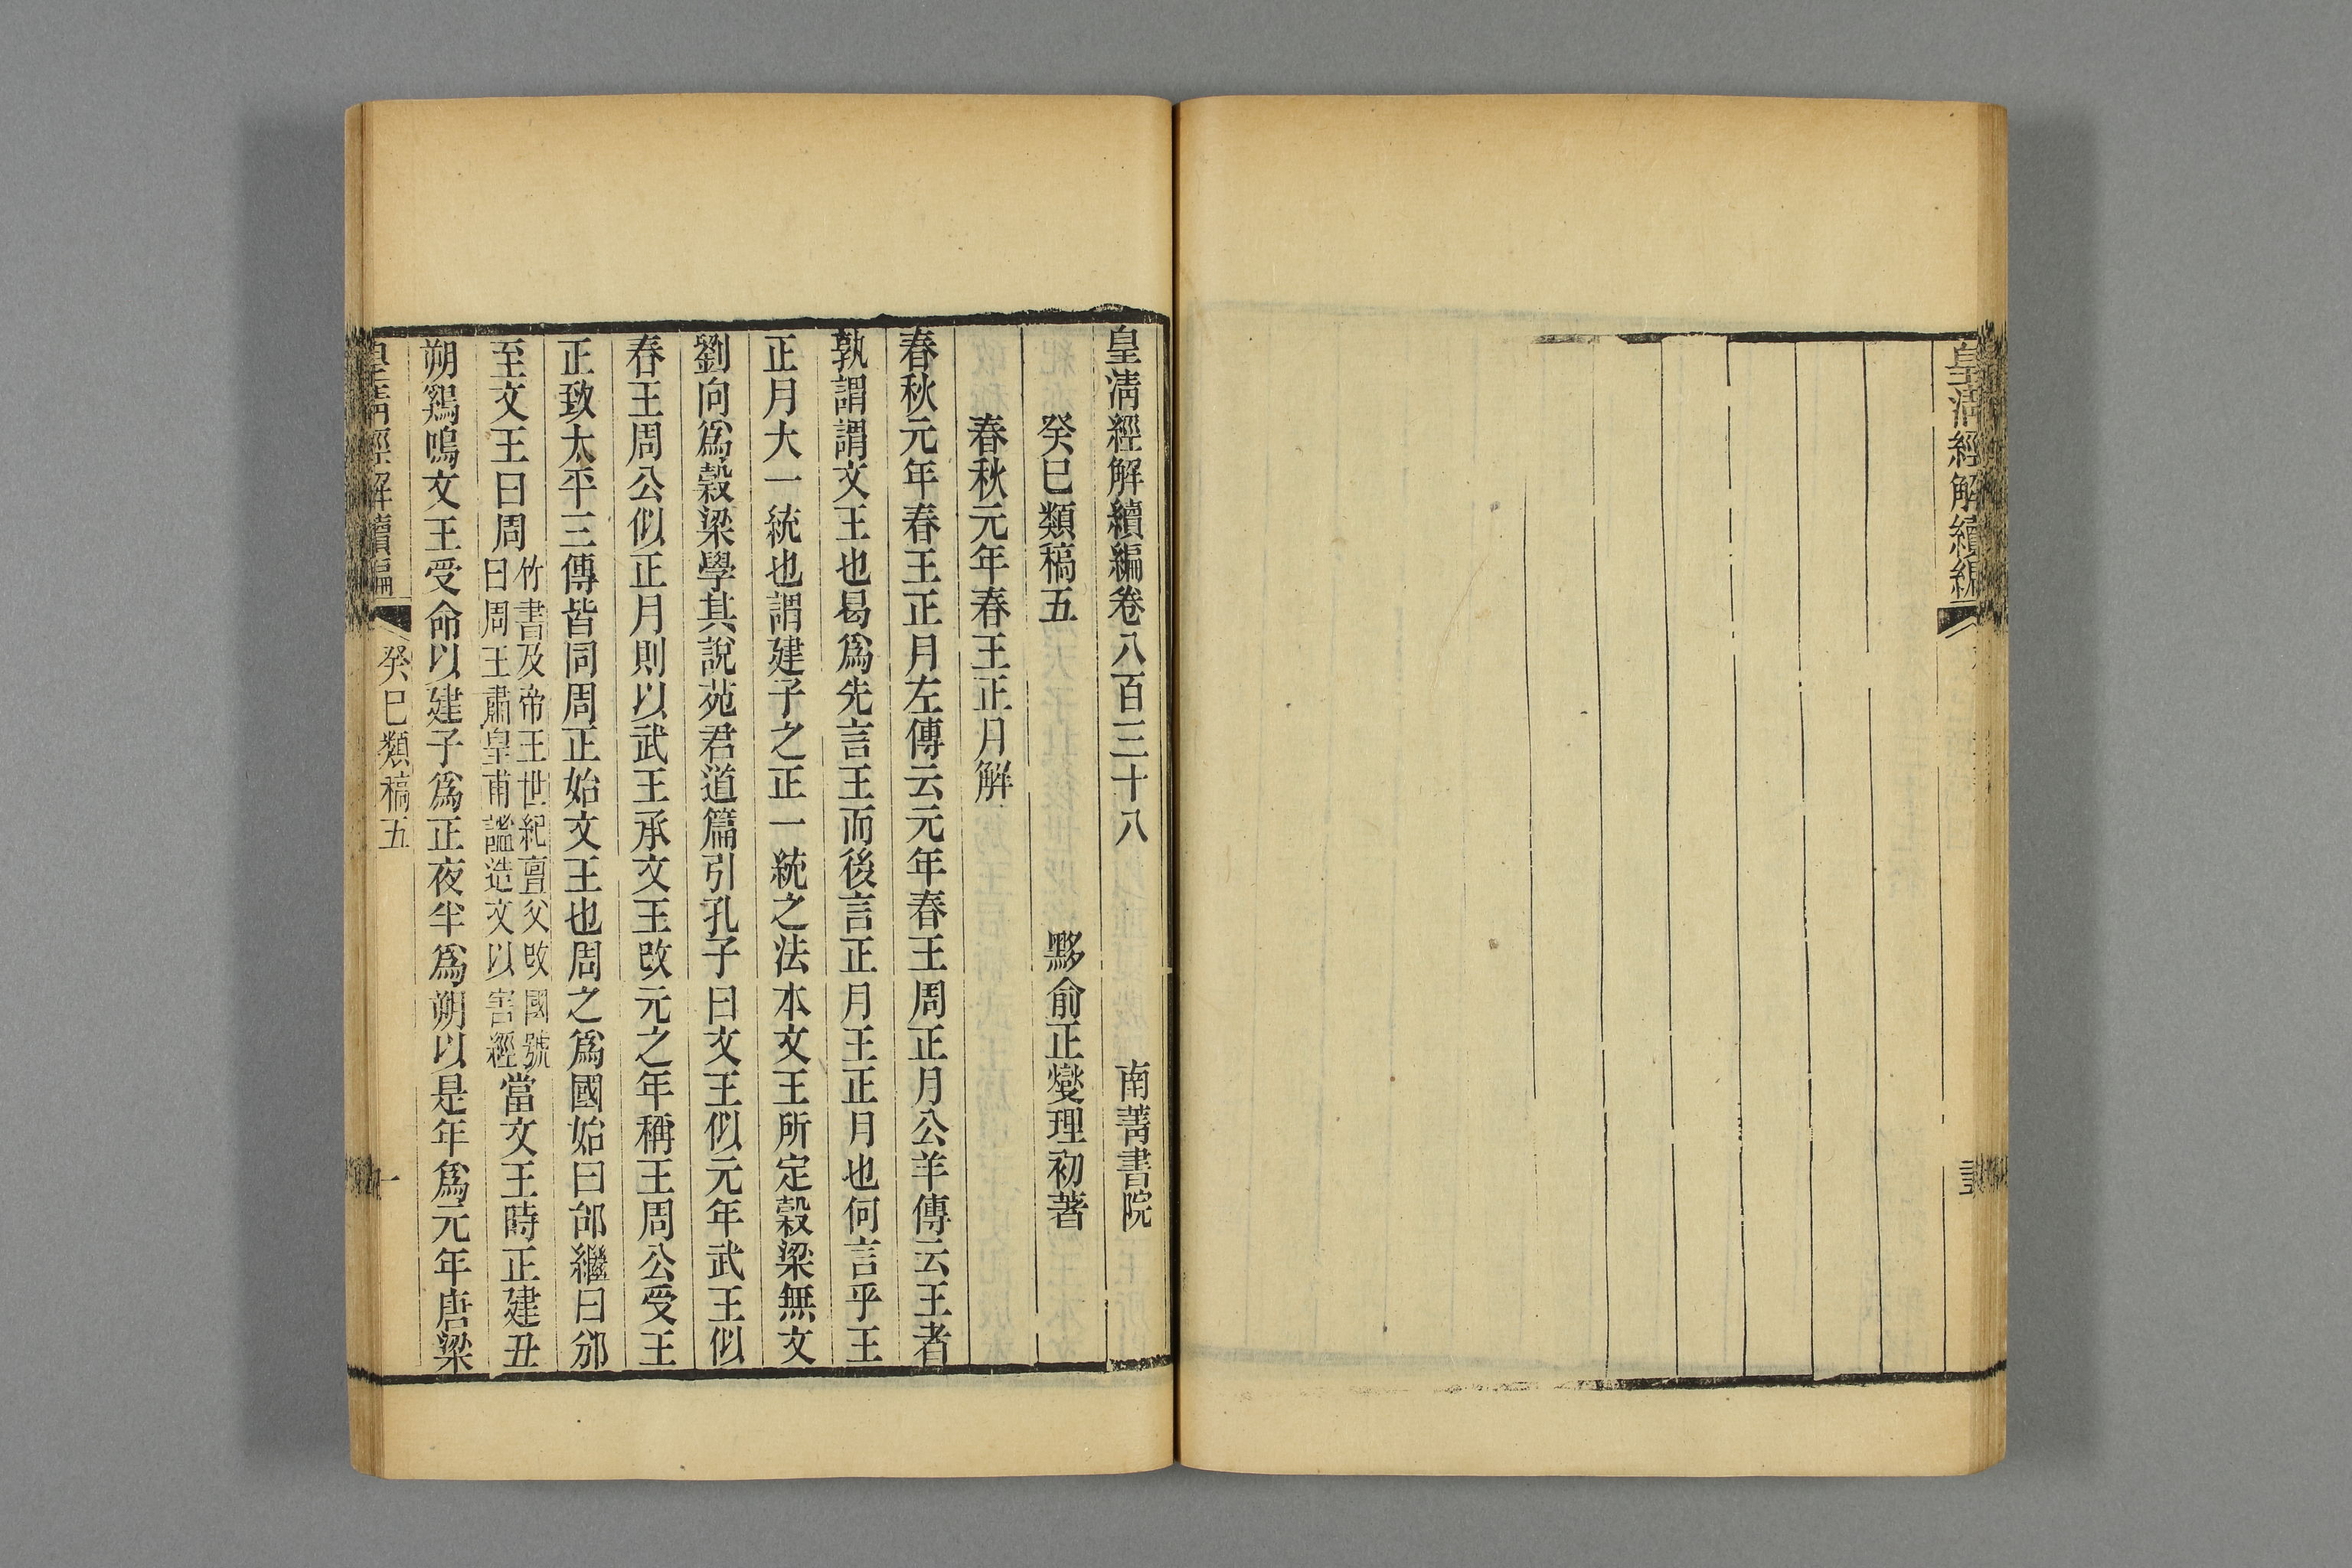 皇清經解續編
皇清經解續編卷八百三十八 南菁書院
癸巳類稿五 黟俞正燮理初著
春秋元年春王正月解
春秋元年春王正月左傳云元年春王周正月公羊傳云王者
孰謂謂文王也曷爲先言王而後言正月王正月也何言乎王
正月大一統也謂建子之正一統之法本文王所定穀梁無文
劉向爲穀梁學其說苑君道篇引孔子曰文王似元年武王似
春王周公似正月則以武王承文王改元之年稱王周公受王
正致太平三傳皆同周正始文王也周之爲國始曰邰繼曰邠
至文王曰周竹書及帝王世紀亶父改國號曰周王肅皇甫謐造文以害經當文王時正建丑
朔鷄鳴文王受命以建子爲正夜半爲朔以是年爲元年唐梁
皇清經解續編 癸巳類稿五 一